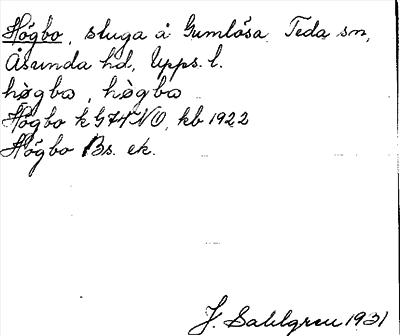 Högbo, stuga å Gumlösa Teda sn,
Åsunda hd, Upps. l.
hø̀gbo, hø̀gbo
Högbo k G74NO, kb 1922
Högbo Bs. ek.
J. Sahlgren 1931